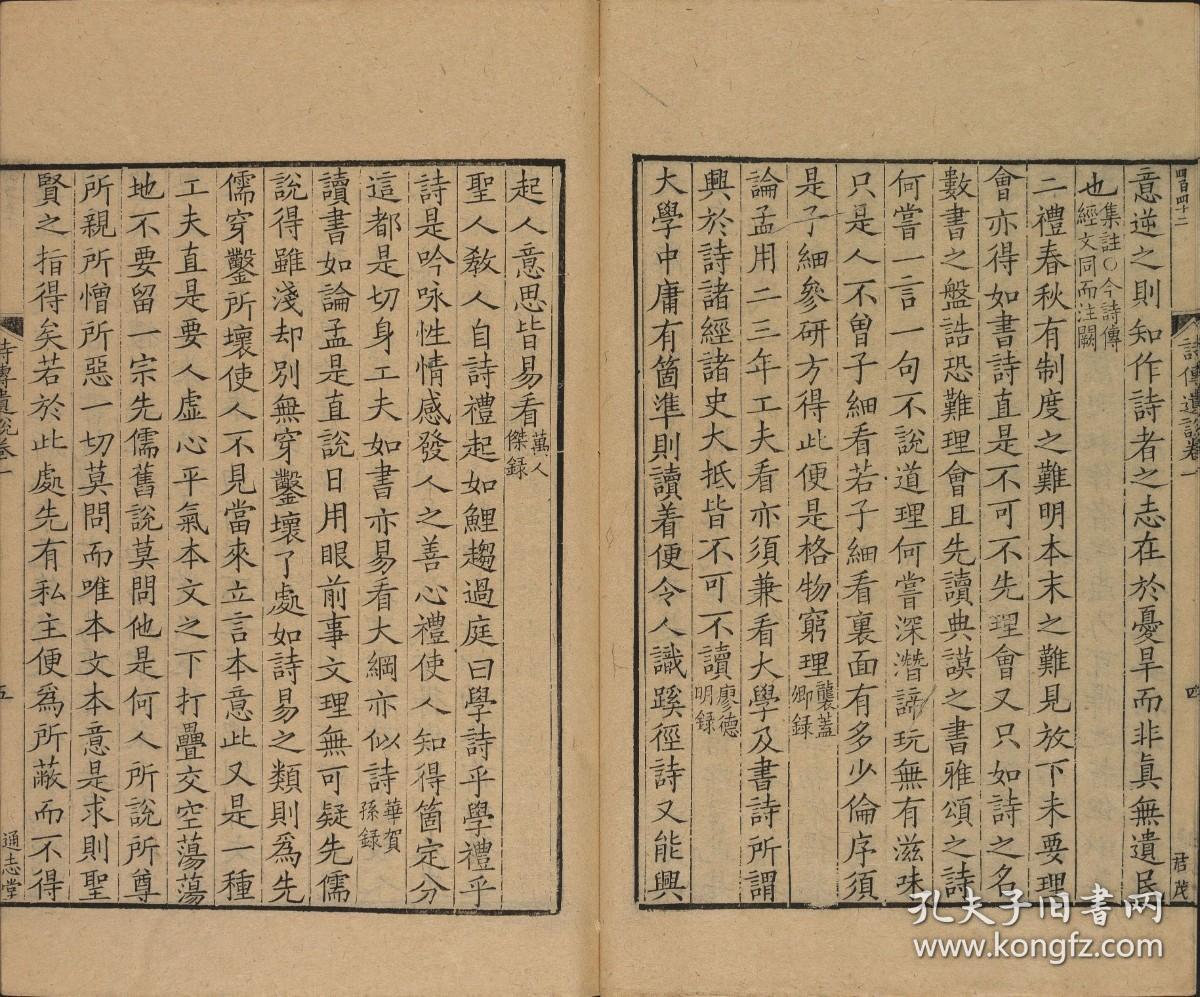 四百四十二
詩傳遺說卷一
四
君茂
意逆之則知作詩者之志在於憂旱而非眞無遺民
也集註○今詩傳經文同而注闕
二禮春秋有制度之難明本末之難見放下未要理
會亦得如書詩直是不可不先理會又只如詩之名
數書之盤誥恐難理會且先讀典謨之書雅頌之詩
何嘗一言一句不說道理何嘗深潛諦玩無有滋味
只是人不曾子細看若子細看裏面有多少倫序須
是子細參研方得此便是格物窮理龔蓋卿錄
論孟用二三年工夫看亦須兼看大學及書詩所謂
興於詩諸經諸史大抵皆不可不讀廖德明錄
大學中庸有箇準則讀着便令人識蹊徑詩又能興
起人意思皆易看萬人傑錄
聖人敎人自詩禮起如鯉趨過庭曰學詩乎學禮乎
詩是吟咏性情感發人之善心禮使人知得箇定分
這都是切身工夫如書亦易看大綱亦似詩華賀孫錄
讀書如論孟是直說日用眼前事文理無可疑先儒
說得雖淺却別無穿鑿壞了處如詩易之類則爲先
儒穿鑿所壞使人不見當來立言本意此又是一種
工夫直是要人虛心平氣本文之下打疊交空蕩蕩
地不要留一宗先儒舊說莫問他是何人所說所尊
所親所憎所惡一切莫問而唯本文本意是求則聖
賢之指得矣若於此處先有私主便爲所蔽而不得
詩傳遺說卷一
五
通志堂
孔夫子旧书网
www.kongfz.com